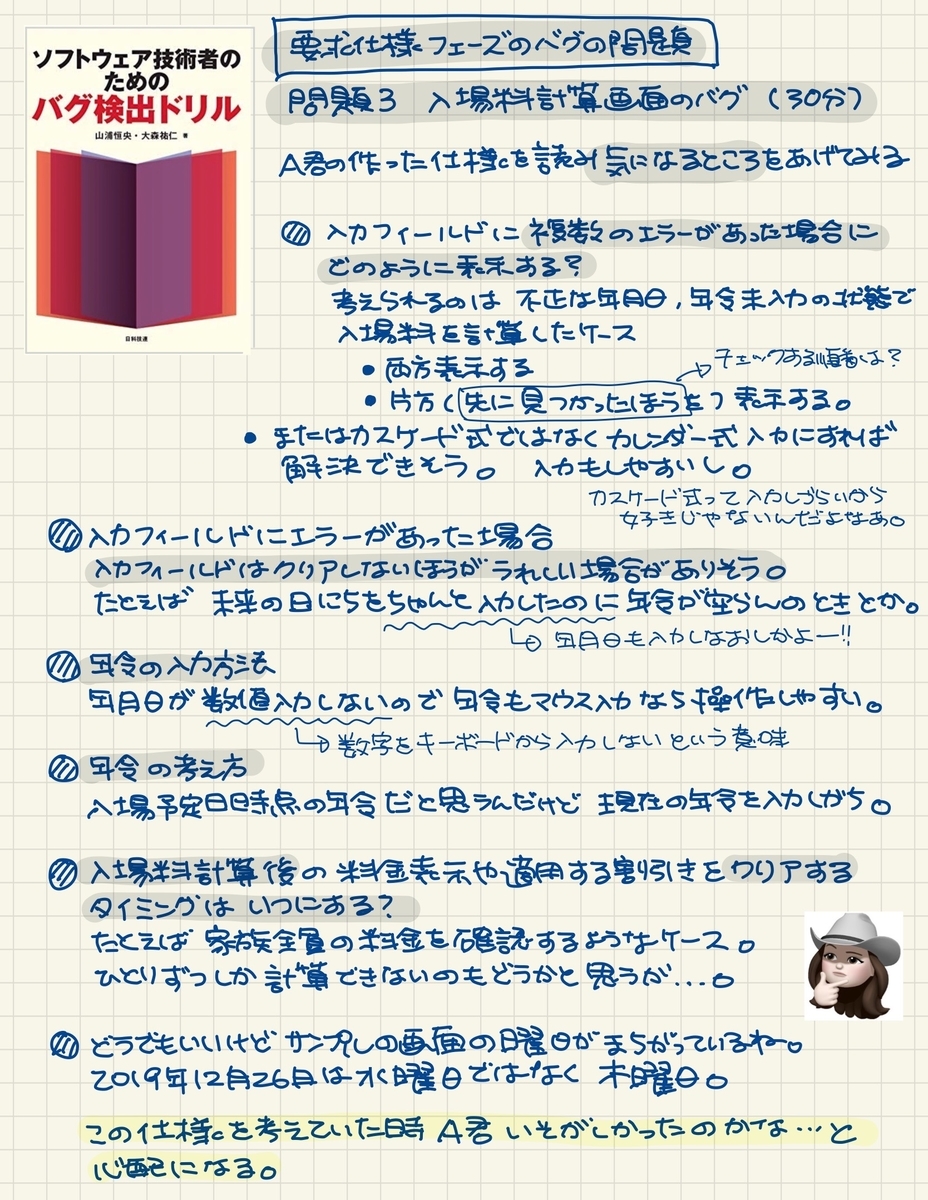 ソフトウェア技術者の
ための
バグ検出ドリル
山浦恒央・大森祐仁 著
日科技連
要求仕様フェーズのバグの問題
問題3 入場料計算画面のバグ (30分)
A君の作った仕様を読み気になるところをあげてみる
入力フィールドに複数のエラーがあった場合に
どのように表示する?
考えられるのは 不正な年月日, 年令未入力の状態で
入場料を計算したケース
• 両方表示する
→チェックする順番は?
• 片方(先に見つかったほうを)表示する。
• またはカスケード式ではなくカレンダー式入力にすれば
解決できそう。 入力もしやすいし。
カスケード式って入力しづらいから
好きじゃないんだよなあ。
入力フィールドにエラーがあった場合
入力フィールドはクリアしないほうがうれしい場合がありそう。
たとえば 未来の日にちをちゃんと入力したのに年令が空らんのときとか。
→年月日も入力しなおしかよー!!
年令の入力方法
年月日が数値入力しないので年令もマウス入力なら操作しやすい。
→数字をキーボードから入力しないという意味
年令の考え方
入場予定日時点の年令だと思うんだけど 現在の年令を入力しがち。
入場料計算後の料金表示や適用する割引きをクリアする
タイミングは いつにする?
たとえば 家族全員の料金を確認するようなケース。
ひとりずつしか計算できないのもどうかと思うが…。
どうでもいいけど サンプルの画面の曜日がまちがっているね。
2019年12月26日は水曜日ではなく 木曜日。
この仕様を考えていた時 A君 いそがしかったのかな…と
心配になる。